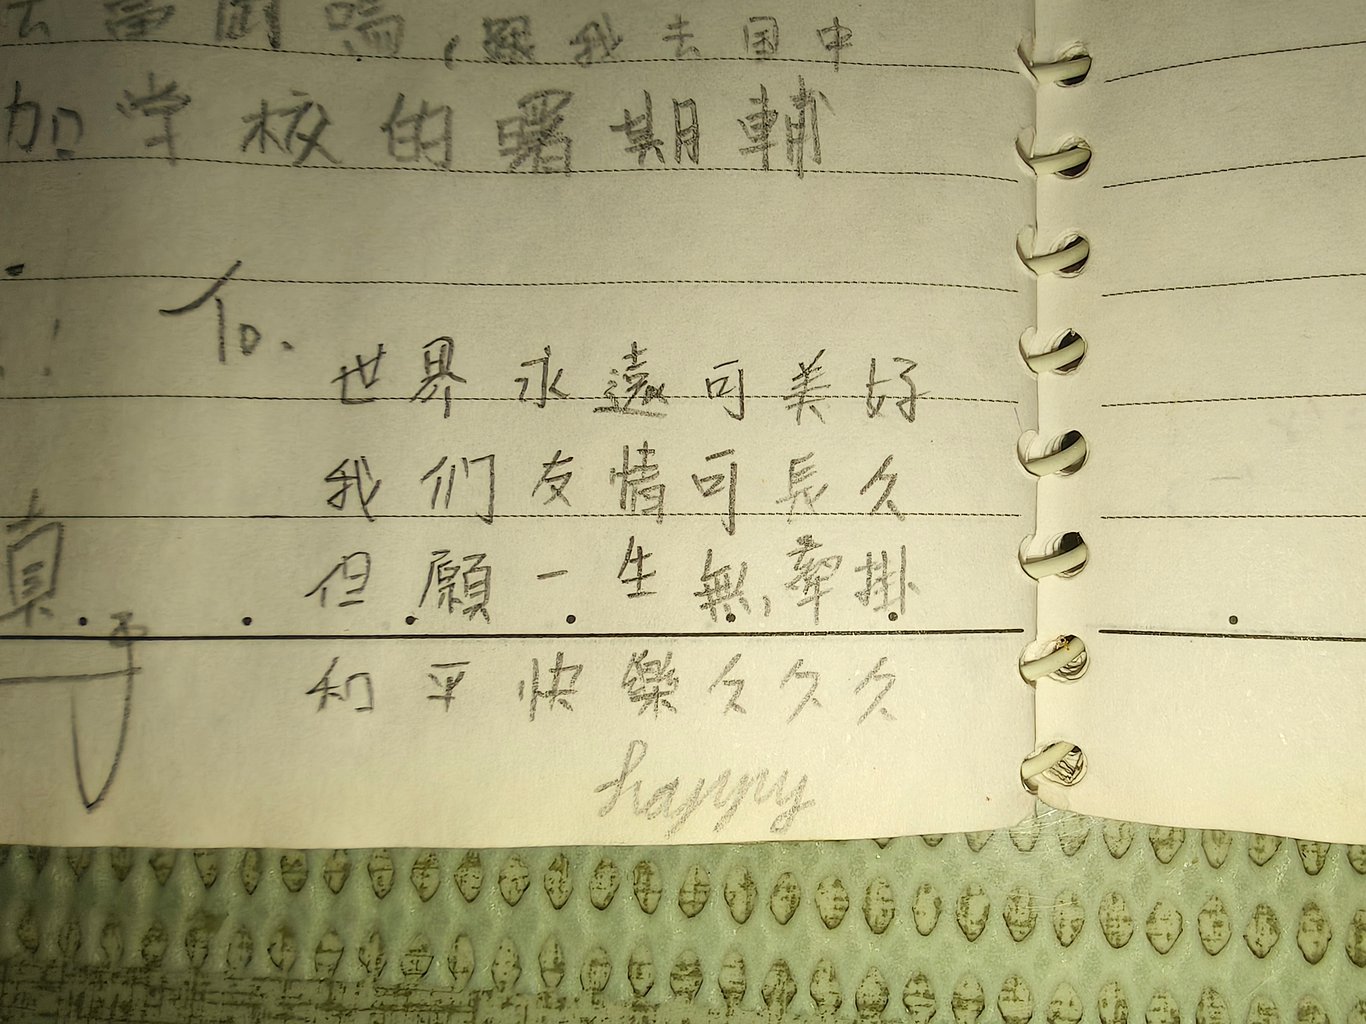 去當同嗎,跟我去国中
加学校的曙期輔
To.
世界永遠可美好
我们友情可長久
但願一生無牽掛
和平快樂久久久
happy